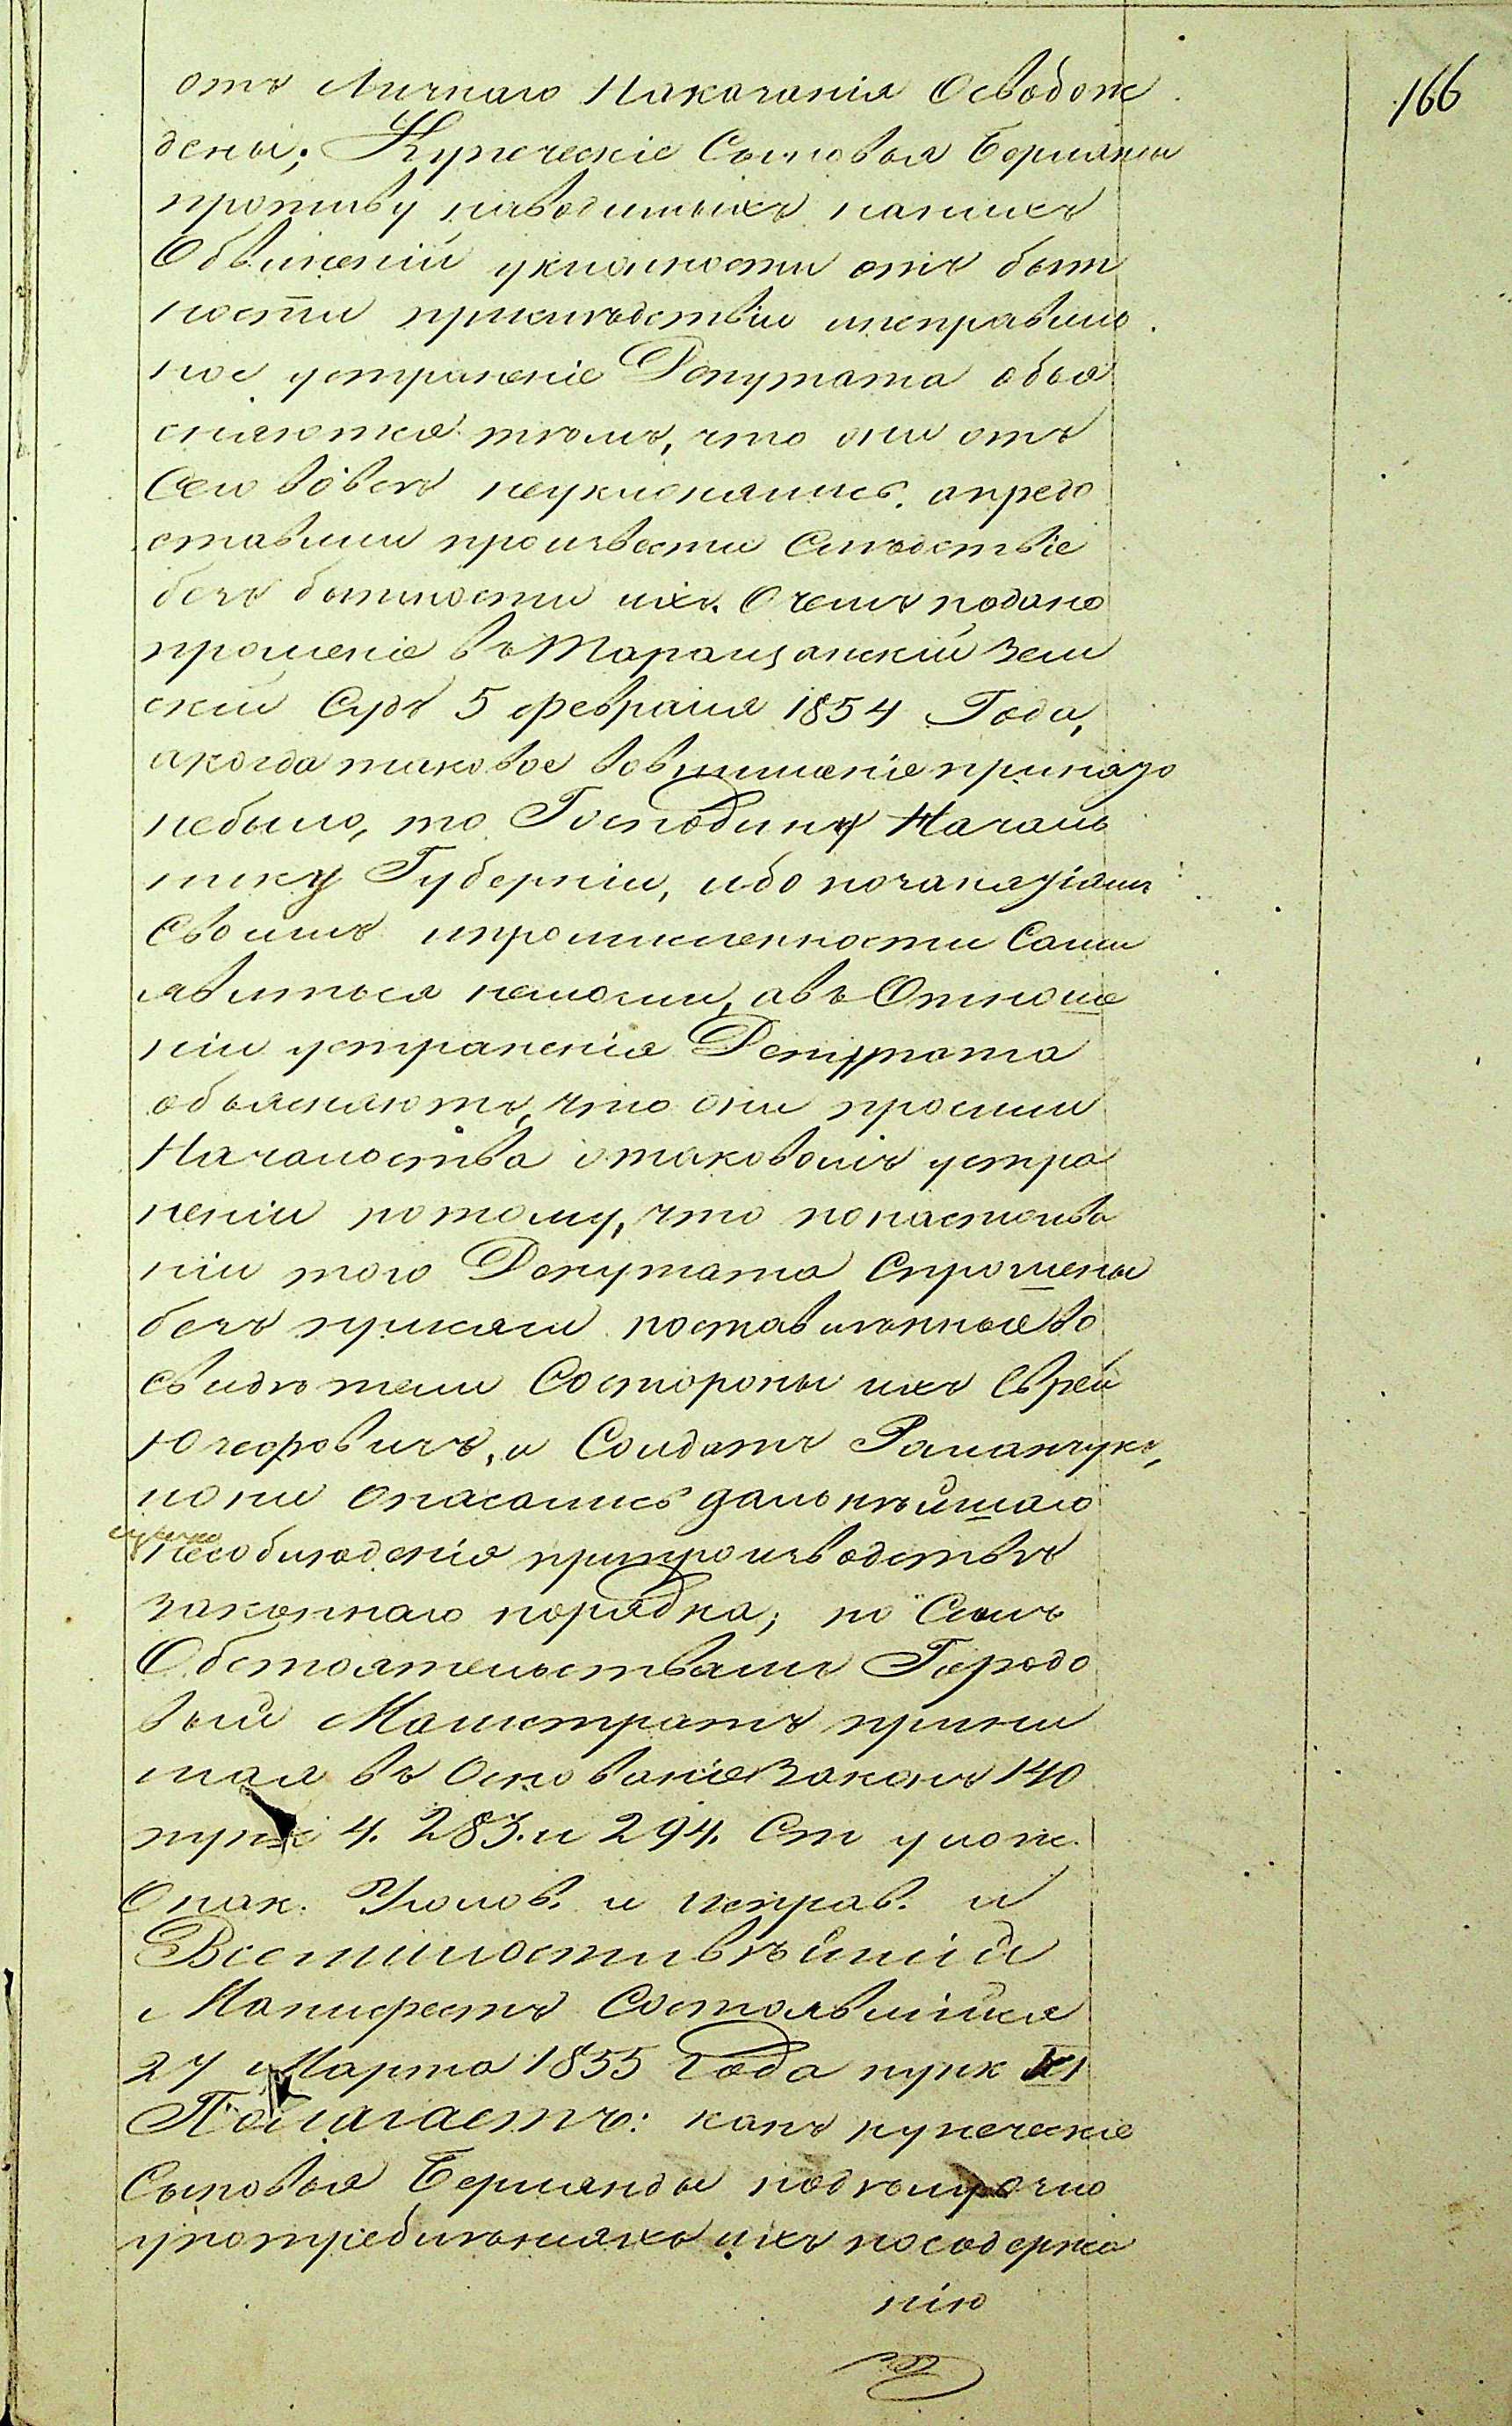 166
отъ Личнаго Наказанія Освобож
дены; Купеческіе Сыновья Берлянды
противу наводимыхъ нанихъ
Обвиненій уклонности отъ быт
ности прислѣдствіи инеправиль
ное устраненіе Депутата объя
сняются тѣмъ, что они отъ
Сего вовсе неуклонялись, апредо
ставили произвести Слѣдствіе
безъ бытности ихъ. О чемъ подано
прошеніе въ Таращанскій Зем
скій Судъ 5 февраля 1854 Года,
акогда таковое вовниманіе принято
небыло, то Господину Началь
нику Губерніи, ибо позанятіямъ
Своимъ ипромышленности Сами
явиться немогли, авъ Отноше
ніи устраненія Депутата
объясняютъ, что они просили
Начальства отаковомъ устра
неніи потому, что понастоява
нію того Депутата Спрошены
безъ присяги поставленные во
свидѣтели Состороны ихъ Еврей
Юзефовичъ, и Солдатъ Романчукъ,
иони опасались дальнѣйшаго
несоблюденія припроизводствѣ
законнаго порядка; по Симъ
Обстоятельствамъ Городо
вый Магистратъ прини
мая въ Основаніе Законъ 140
пунк 4. 283. и 294. Ст улож.
О нак. Уголов. и исправ. и
Всемилостивѣйшій
Манифестъ Состоявшійся
27 Марта 1855 Года пунк XI
Полагаетъ: какъ купеческіе
Сыновья Берлянды
употребленіяхъ ихъ посодержа
нію